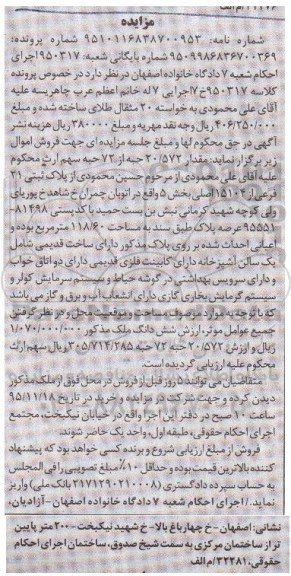 مزایده
شماره نامه: ۹۵۱۰۱۱۶۸۳۸۷۰۰۹۵۳ شماره پرونده:
۹۵۰۹۹۸۶۸۳۶۷۰۰۳۶۹ شماره بایگانی شعبه: ۹۵۰۳۱۷ اجرای
احکام شعبه ۷ دادگاه خانواده اصفهان در نظر دارد در خصوص پرونده
کلاسه ۹۵۰۳۱۷ خ۷ اجرایی له خانم اعظم عرب چاهریسه علیه
آقای علی محمودی به خواسته ۲۰ مثقال طلای ساخته شده و مبلغ
۴۰۶/۲۵۰/۰۰۰ ریال وجه نقد مهریه و مبلغ ۳۸۰۰۰۰ ریال هزینه نشر
آگهی در حق محکوم لها و مبلغ جلسه مزایده ای جهت فروش اموال
زیر برگزار نماید: مقدار ۲۰/۵۷۲ حبه از ۷۲ حبه سهم ارث محکوم
علیه آقای علی محمودی از مرحوم حسین محمودی از پلاک ثبتی ۲۱
فرعی از ۱۵۱۰۴ اصلی بخش ۵ واقع در اتوبان چمران خ شاهد خ پوریای
ولی کوچه شهید کرمانی نبش بن بست حمید با کدپستی ۸۱۴۹۸
۹۵۵۵۱ عرصه پلاک طبق سند به مساحت ۱۱۸/۶۰ مترمربع بوده و
اعیانی احداث شده بر روی پلاک مذکور دارای ساخت قدیمی شامل
یک سالن آشپزخانه دارای کابینت فلزی قدیمی دارای دو اتاق خواب
و دارای سرویس بهداشتی در گوشه حیاط و سیستم سرمایش کولر و
سیستم گرمایش بخاری گازی دارای انشعاب آب و برق و گاز می باشد
که با توجه به موارد موصوف مساحت و موقعیت محل و در نظر گرفتن
جمیع عوامل موثر، ارزش شش دانگ ملک مذکور ۱/۰۷۰/۰۰۰/۰۰۰
ریال و ارزش ۲۰/۵۷۲ حبه ۷۲ حبه ۳۰۵/۷۱۴/۲۸۵ ریال سهم ارث
محکوم علیه ارزیابی گردیده است.
متقاضیان می توانند ۵ روز قبل از فروش در محل فوق از ملک مذکور
دیدن کرده و جهت شرکت در مزایده و خرید در تاریخ ۹۵/۱۱/۱۸
ساعت ۱۰ صبح در دفتر این اجرا واقع در خیابان نیکبخت، مجتمع
اجرای احکام حقوقی، طبقه اول، واحد یک حاضر شوند.
فروش از مبلغ ارزیابی شروع و برنده کسی خواهد بود که پیشنهاد
کننده بالاترین قیمت بوده و حداقل ۱۰٪ مبلغ تصویبی را فی المجلس
به حساب سپرده دادگستری (۲۱۷۱۲۹۰۲۱۰۰۰۸ بانک ملی) واریز
نماید./ اجرای احکام شعبه ۷ دادگاه خانواده اصفهان - آزادیان،
نشانی: اصفهان - خ چهارباغ بالا- خ شهید نیکبخت - ۲۰۰ متر پایین
تر از ساختمان مرکزی به سمت شیخ صدوق، ساختمان اجرای احکام
حقوقی، ۳۲۲۸۱/م الف